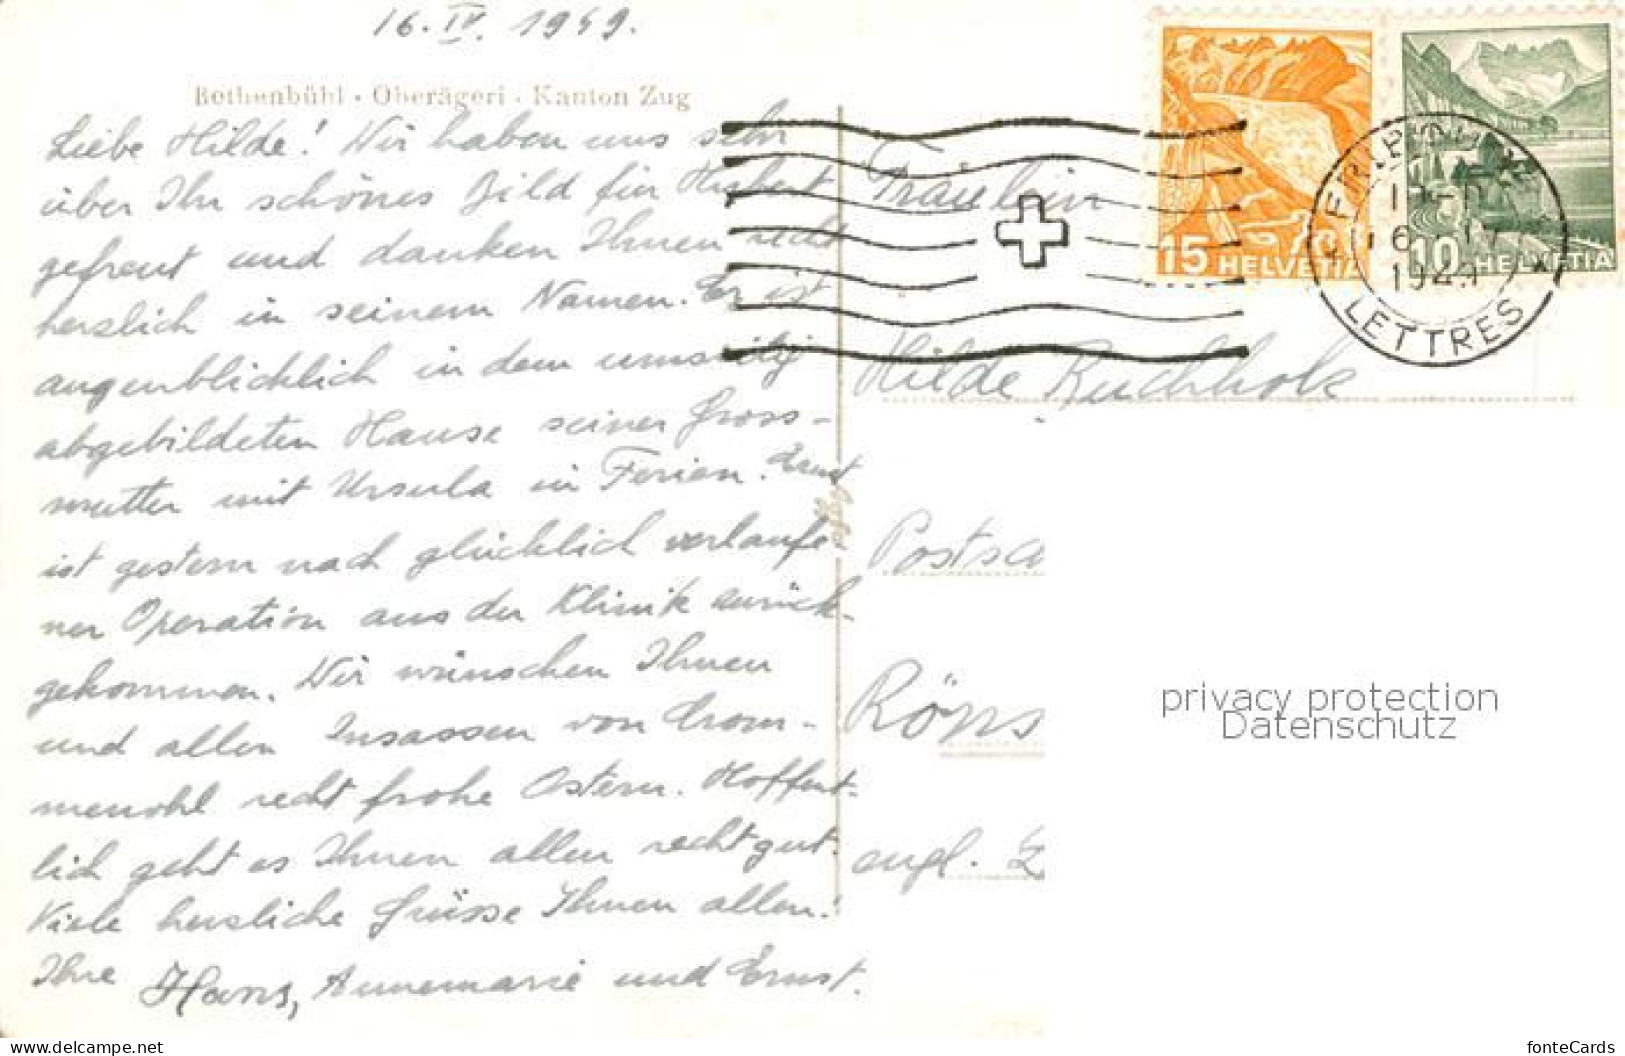 16. IV. 1949.
Bethenbühl · Oberägeri · Kanton Zug
Liebe Hilde! Wir haben uns sehr
über Ihr schönes Bild für Hubert
gefreut und danken Ihnen recht
herzlich in seinem Namen. Er ist
augenblicklich in dem umseitig
abgebildeten Hause seiner Gross-
mutter mit Ursula in Ferien. Ernst
ist gestern nach glücklich verlaufe-
ner Operation aus der Klinik zurück-
gekommen. Wir wünschen Ihnen
und allen Insassen von
recht frohe Ostern. Hoffent-
lich geht es Ihnen allen recht gut.
Viele herzliche Grüsse Ihnen allen!
Ihre Hans, Annemarie und Ernst.
15 HELVETIA
10 HELVETIA
1949
LETTRES
Fräulein
Hilde Buchholz
Postsc
Röns
engl. Z
privacy protection
Datenschutz
www.delcampe.net
fonteCards